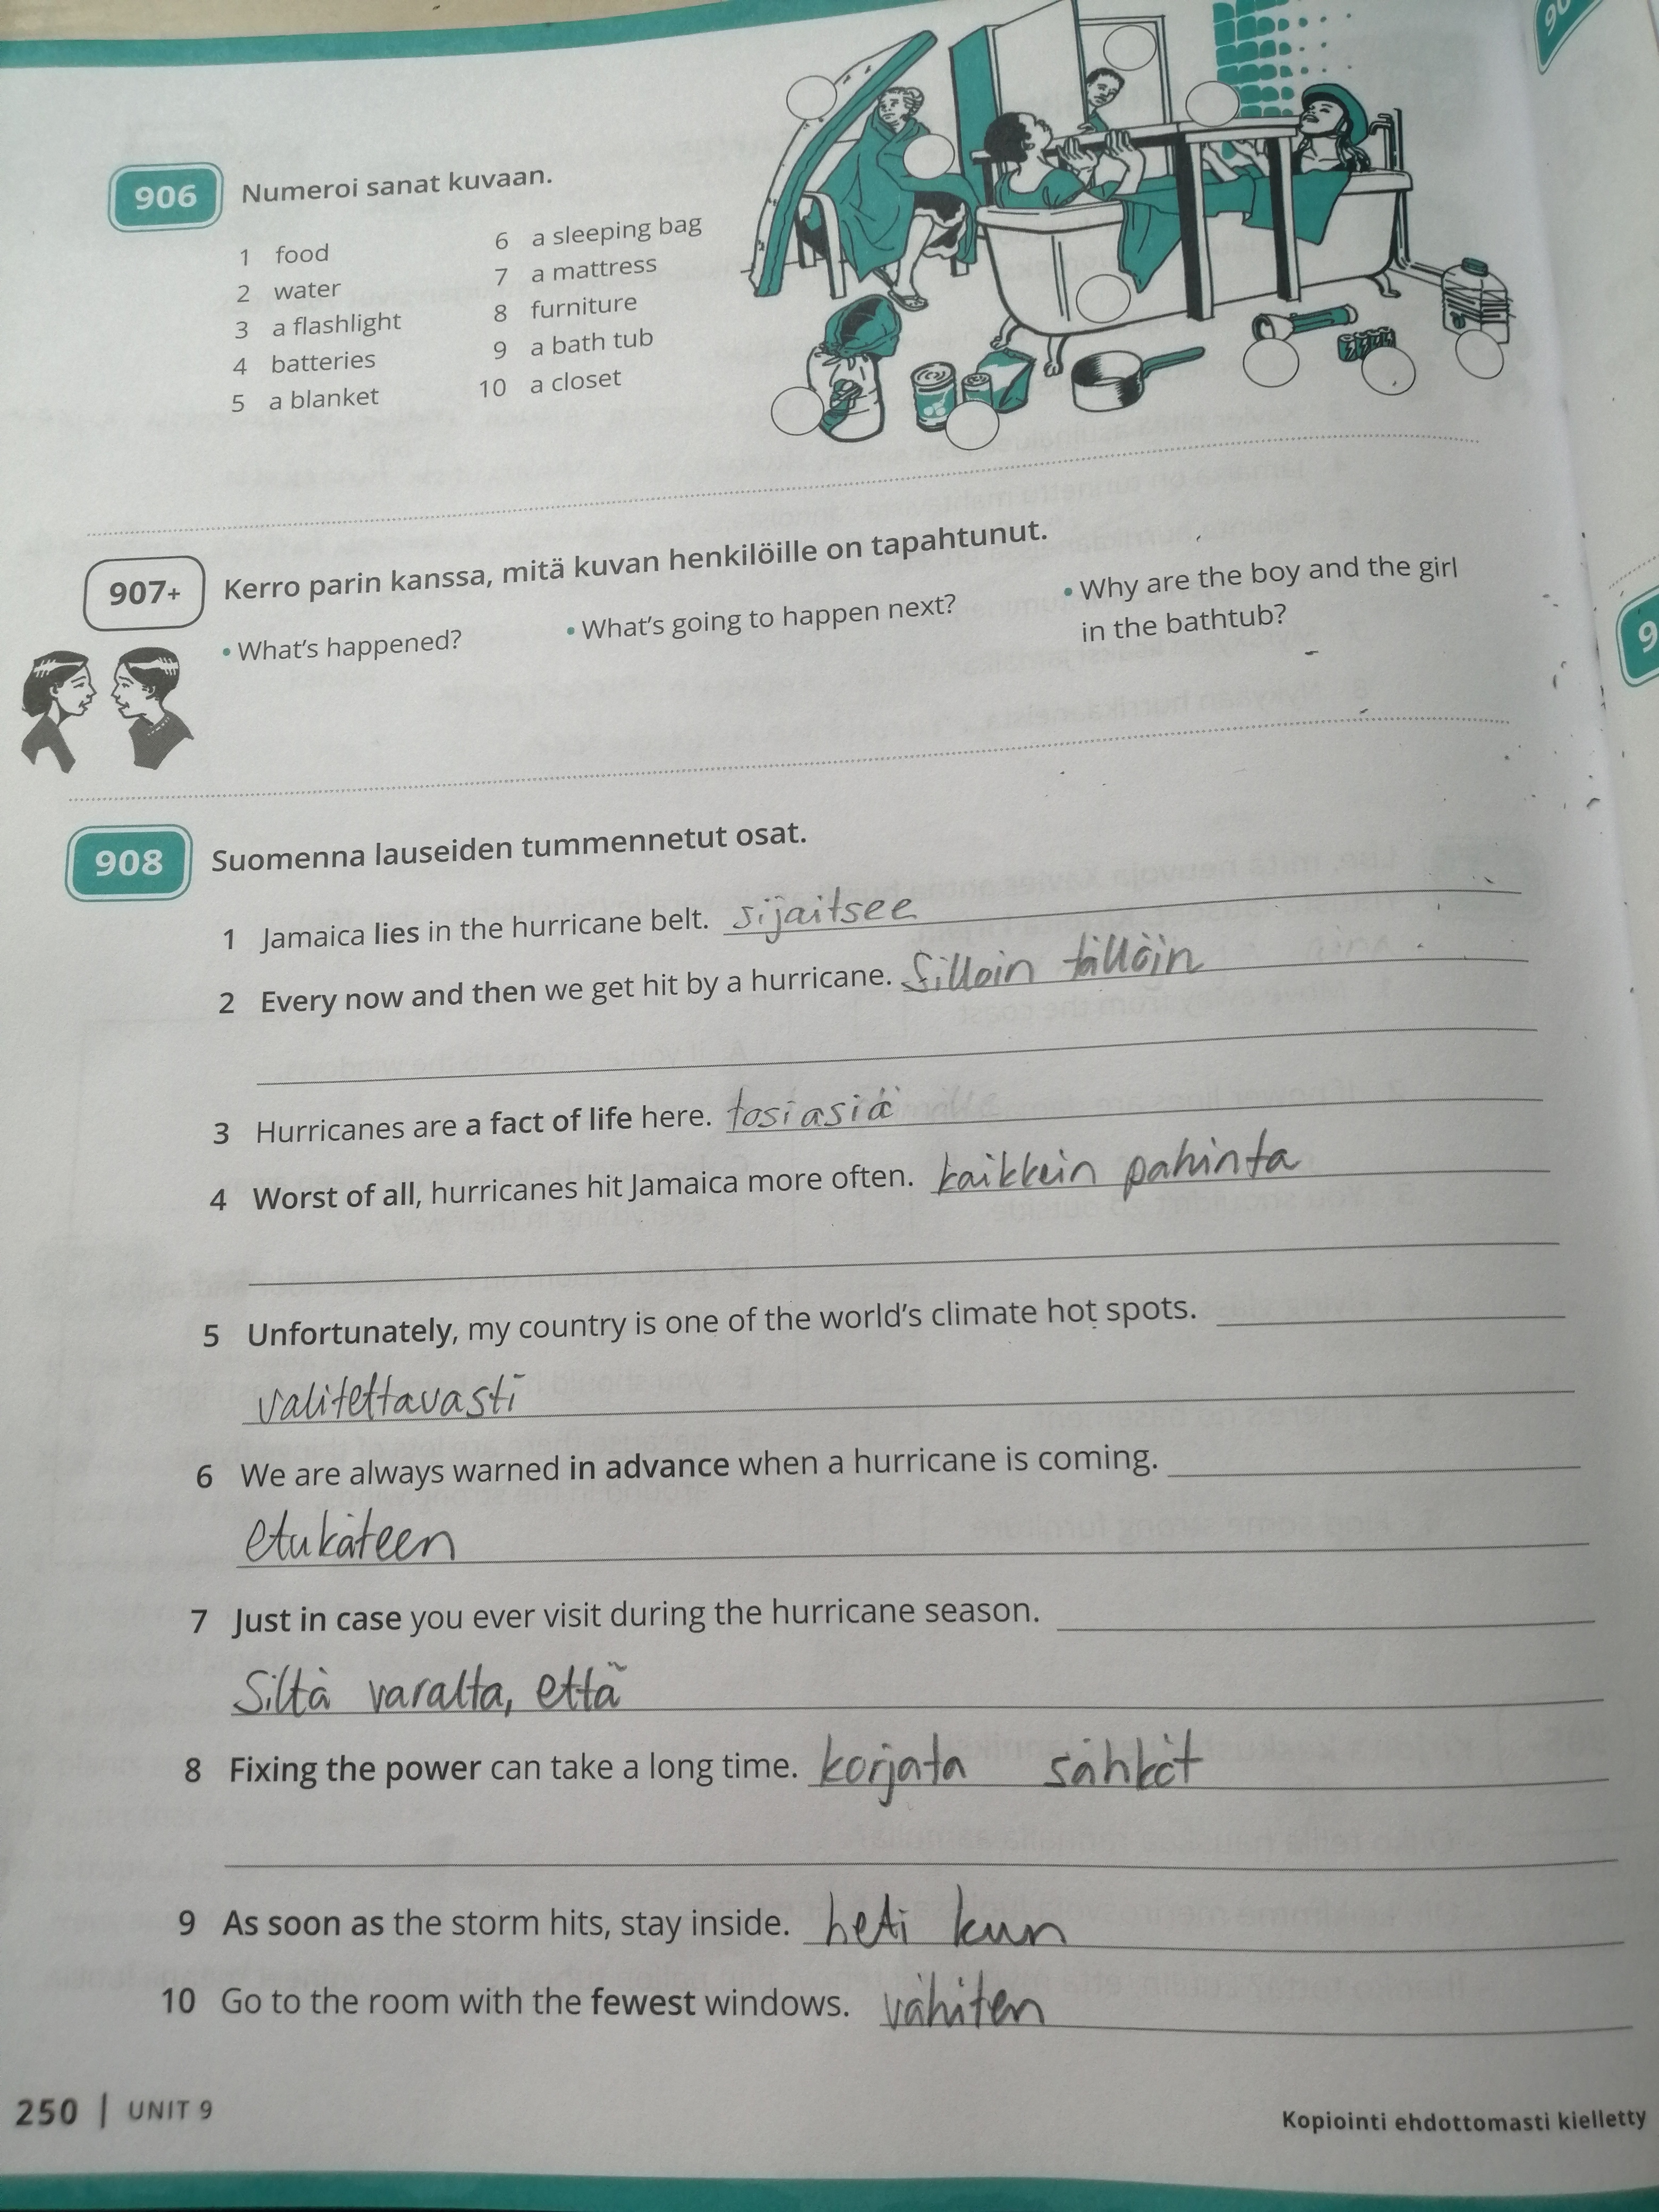 906 Numeroi sanat kuvaan.
1 food
2 water
3 a flashlight
4 batteries
5 a blanket
6 a sleeping bag
7 a mattress
8 furniture
9 a bath tub
10 a closet
907+ Kerro parin kanssa, mitä kuvan henkilöille on tapahtunut.
• What's happened?
• What's going to happen next?
• Why are the boy and the girl
in the bathtub?
908 Suomenna lauseiden tummennetut osat.
1 Jamaica lies in the hurricane belt. sijaitsee
2 Every now and then we get hit by a hurricane. Silloin tällöin
3 Hurricanes are a fact of life here. tosiasia
4 Worst of all, hurricanes hit Jamaica more often. kaikkein pahinta
5 Unfortunately, my country is one of the world's climate hot spots.
valitettavasti
6 We are always warned in advance when a hurricane is coming.
etukäteen
7 Just in case you ever visit during the hurricane season.
Siltä varalta, että
8 Fixing the power can take a long time. korjata sähköt
9 As soon as the storm hits, stay inside. heti kun
10 Go to the room with the fewest windows. vähiten
250 | UNIT 9
Kopiointi ehdottomasti kielletty